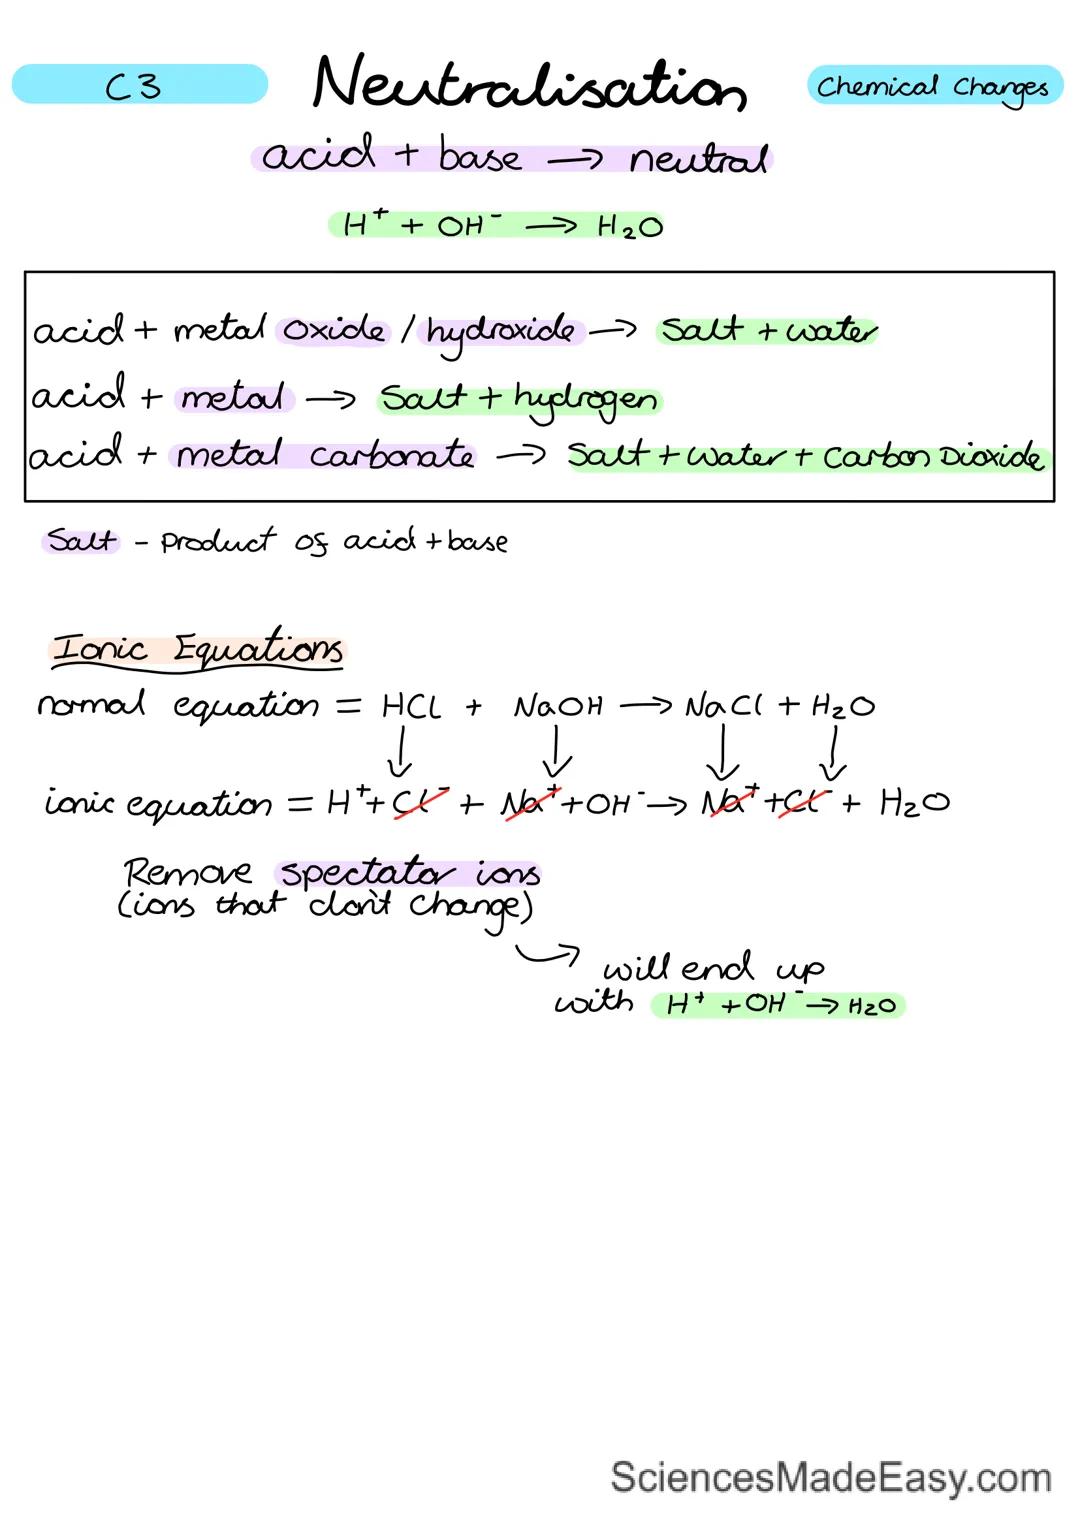 C3 Neutralisation Chemical Changes
acid + base → neutral
H⁺ + OH⁻ → H₂O
acid + metal oxide / hydroxide → Salt + water
acid + metal → Salt + hydrogen
acid + metal carbonate → Salt + water + Carbon Dioxide
Salt - product of acid + base
Ionic Equations
normal equation = HCl + NaOH → NaCl + H₂O
ionic equation = H⁺ + Cl⁻ + Na⁺ + OH⁻ → Na⁺ + Cl⁻ + H₂O
Remove spectator ions
(ions that don't change)
will end up
with H⁺ + OH⁻ → H₂O
SciencesMadeEasy.com